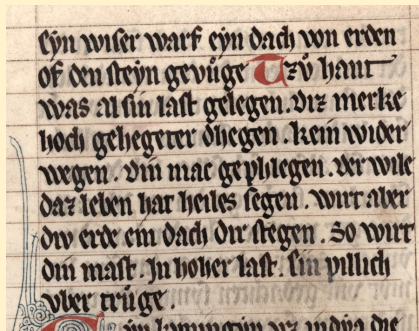 Eyn wiser warf eyn dach von erden
of den steyn gevůge Tzů hant
was al sin last gelegen. Diz merke
hoch gehegeter dhegen. kein wider
wegen. din mac gephlegen. der wile
daz leben hat heiles segen. wirt aber
div erde ein dach dir stegen. So wirt
din mast. In hoher last. sin pillich
vber trůge.